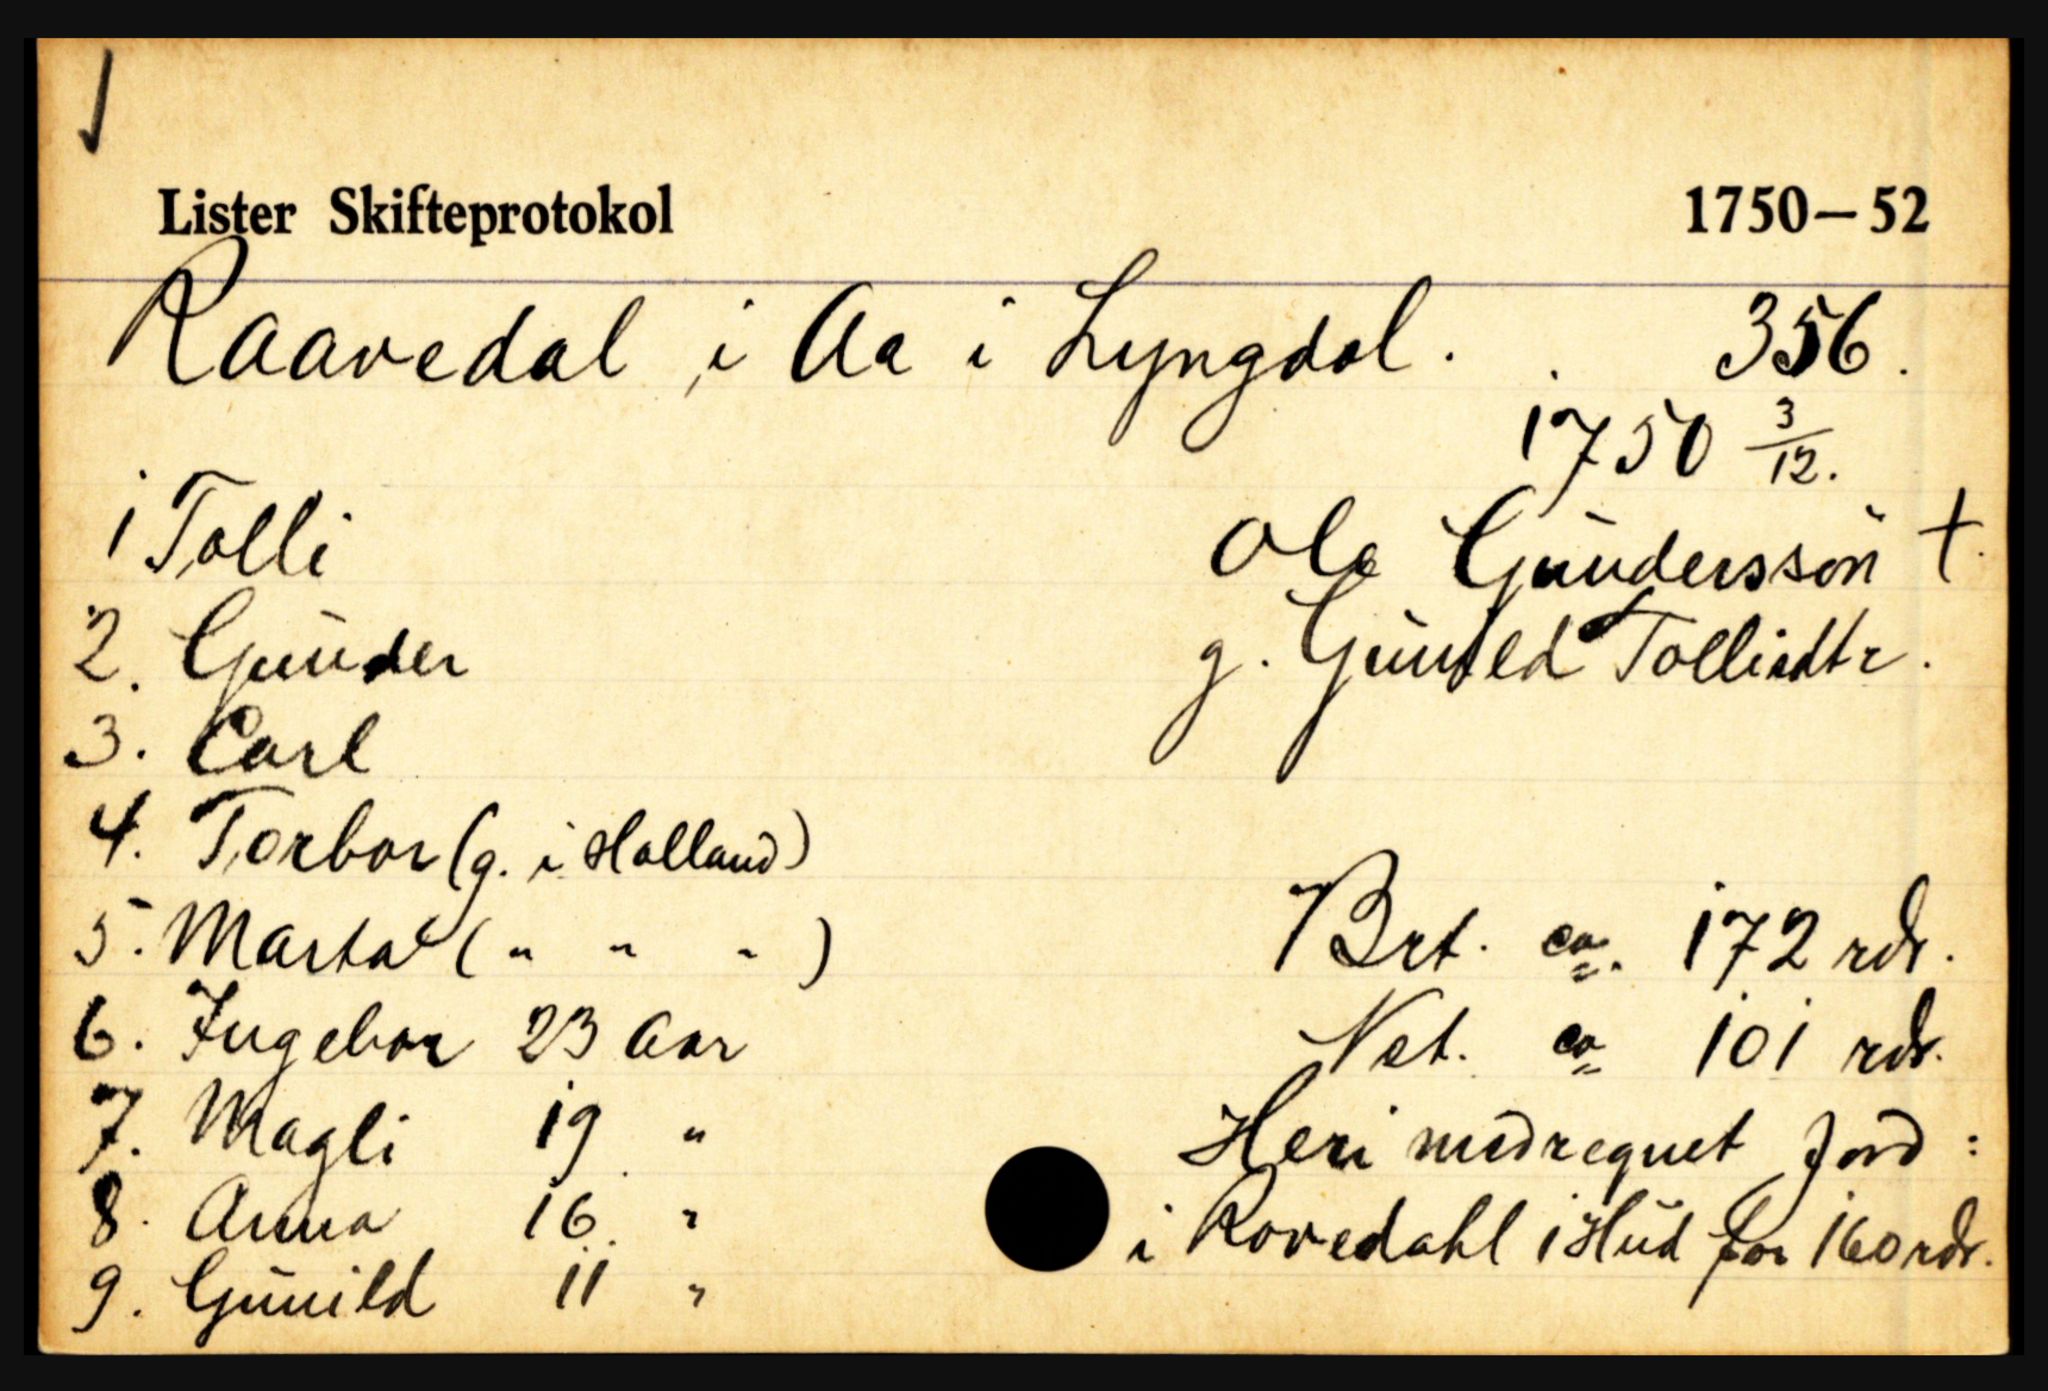 Lister Skifteprotokol 1750–52
Raavedal i Aa i Lyngdal. 356.
1750 3/12.
1 Tolli
Ola Gundersson †.
2. Gunder
g. Gunild Tollisdtr.
3. Carl
4. Torbor (g. i Holland)
5. Marta (" " ")
Brt. ca. 172 rdr.
6. Ingebor 23 Aar
Net. ca 101 rdr.
7. Magli 19 "
Heri medregnet Jord :
8. Anna 16 "
i Rovedahl 1 Hud for 160 rdr.
9. Gunild 11 "